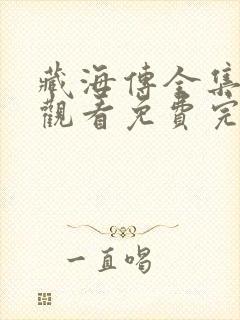 藏海傳全集
觀看免費完
一直唱